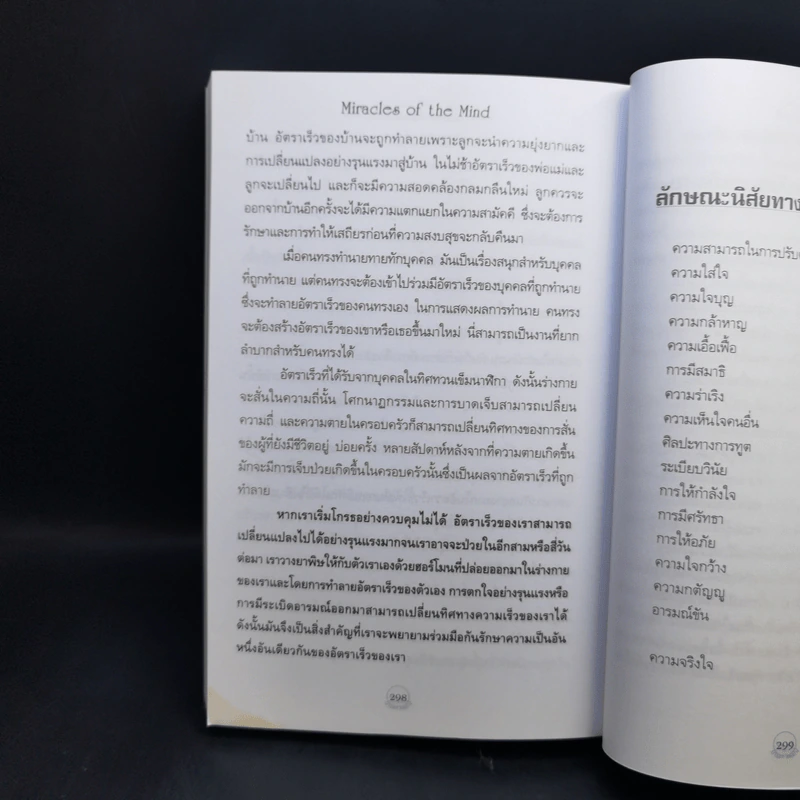 Miracles of the Mind
บ้าน อัตราเร็วของบ้านจะถูกทำลายเพราะลูกจะนำความยุ่งยากและ
การเปลี่ยนแปลงอย่างรุนแรงมาสู่บ้าน ในไม่ช้าอัตราเร็วของพ่อแม่และ
ลูกจะเปลี่ยนไป และก็จะมีความสอดคล้องกลมกลืนใหม่ ลูกควรจะ
ออกจากบ้านอีกครั้งจะได้มีความแตกแยกในความสามัคคี ซึ่งจะต้องการ
รักษาและการทำให้เสถียรก่อนที่ความสงบสุขจะกลับคืนมา
เมื่อคนทรงทำนายทายทักบุคคล มันเป็นเรื่องสนุกสำหรับบุคคล
ที่ถูกทำนาย แต่คนทรงจะต้องเข้าไปร่วมมีอัตราเร็วของบุคคลที่ถูกทำนาย
ซึ่งจะทำลายอัตราเร็วของคนทรงเอง ในการแสดงผลการทำนาย คนทรง
จะต้องสร้างอัตราเร็วของเขาหรือเธอขึ้นมาใหม่ นี่สามารถเป็นงานที่ยาก
ลำบากสำหรับคนทรงได้
อัตราเร็วที่ได้รับจากบุคคลในทิศทวนเข็มนาฬิกา ดังนั้นร่างกาย
จะสั่นในความถี่นั้น โศกนาฏกรรมและการบาดเจ็บสามารถเปลี่ยน
ความถี่ และความตายในครอบครัวก็สามารถเปลี่ยนทิศทางของการสั่น
ของผู้ที่ยังมีชีวิตอยู่ บ่อยครั้ง หลายสัปดาห์หลังจากที่ความตายเกิดขึ้น
มักจะมีการเจ็บป่วยเกิดขึ้นในครอบครัวนั้นซึ่งเป็นผลจากอัตราเร็วที่ถูก
ทำลาย
หากเราเริ่มโกรธอย่างควบคุมไม่ได้ อัตราเร็วของเราสามารถ
เปลี่ยนแปลงไปได้อย่างรุนแรงมากจนเราอาจจะป่วยในอีกสามหรือสี่วัน
ต่อมา เราวางยาพิษให้กับตัวเราเองด้วยฮอร์โมนที่ปล่อยออกมาในร่างกาย
ของเราและโดยการทำลายอัตราเร็วของตัวเอง การตกใจอย่างรุนแรงหรือ
การมีระเบิดอารมณ์ออกมาสามารถเปลี่ยนทิศทางความเร็วของเราได้
ดังนั้นมันจึงเป็นสิ่งสำคัญที่เราจะพยายามร่วมมือกันรักษาความเป็นอัน
หนึ่งอันเดียวกันของอัตราเร็วของเรา
298
ลักษณะนิสัยทาง
ความสามารถในการปรับ
ความใส่ใจ
ความใจบุญ
ความกล้าหาญ
ความเอื้อเฟื้อ
การมีสมาธิ
ความร่าเริง
ความเห็นใจคนอื่น
ศิลปะทางการทูต
ระเบียบวินัย
การให้กำลังใจ
การมีศรัทธา
การให้อภัย
ความใจกว้าง
ความกตัญญู
อารมณ์ขัน
ความจริงใจ
299